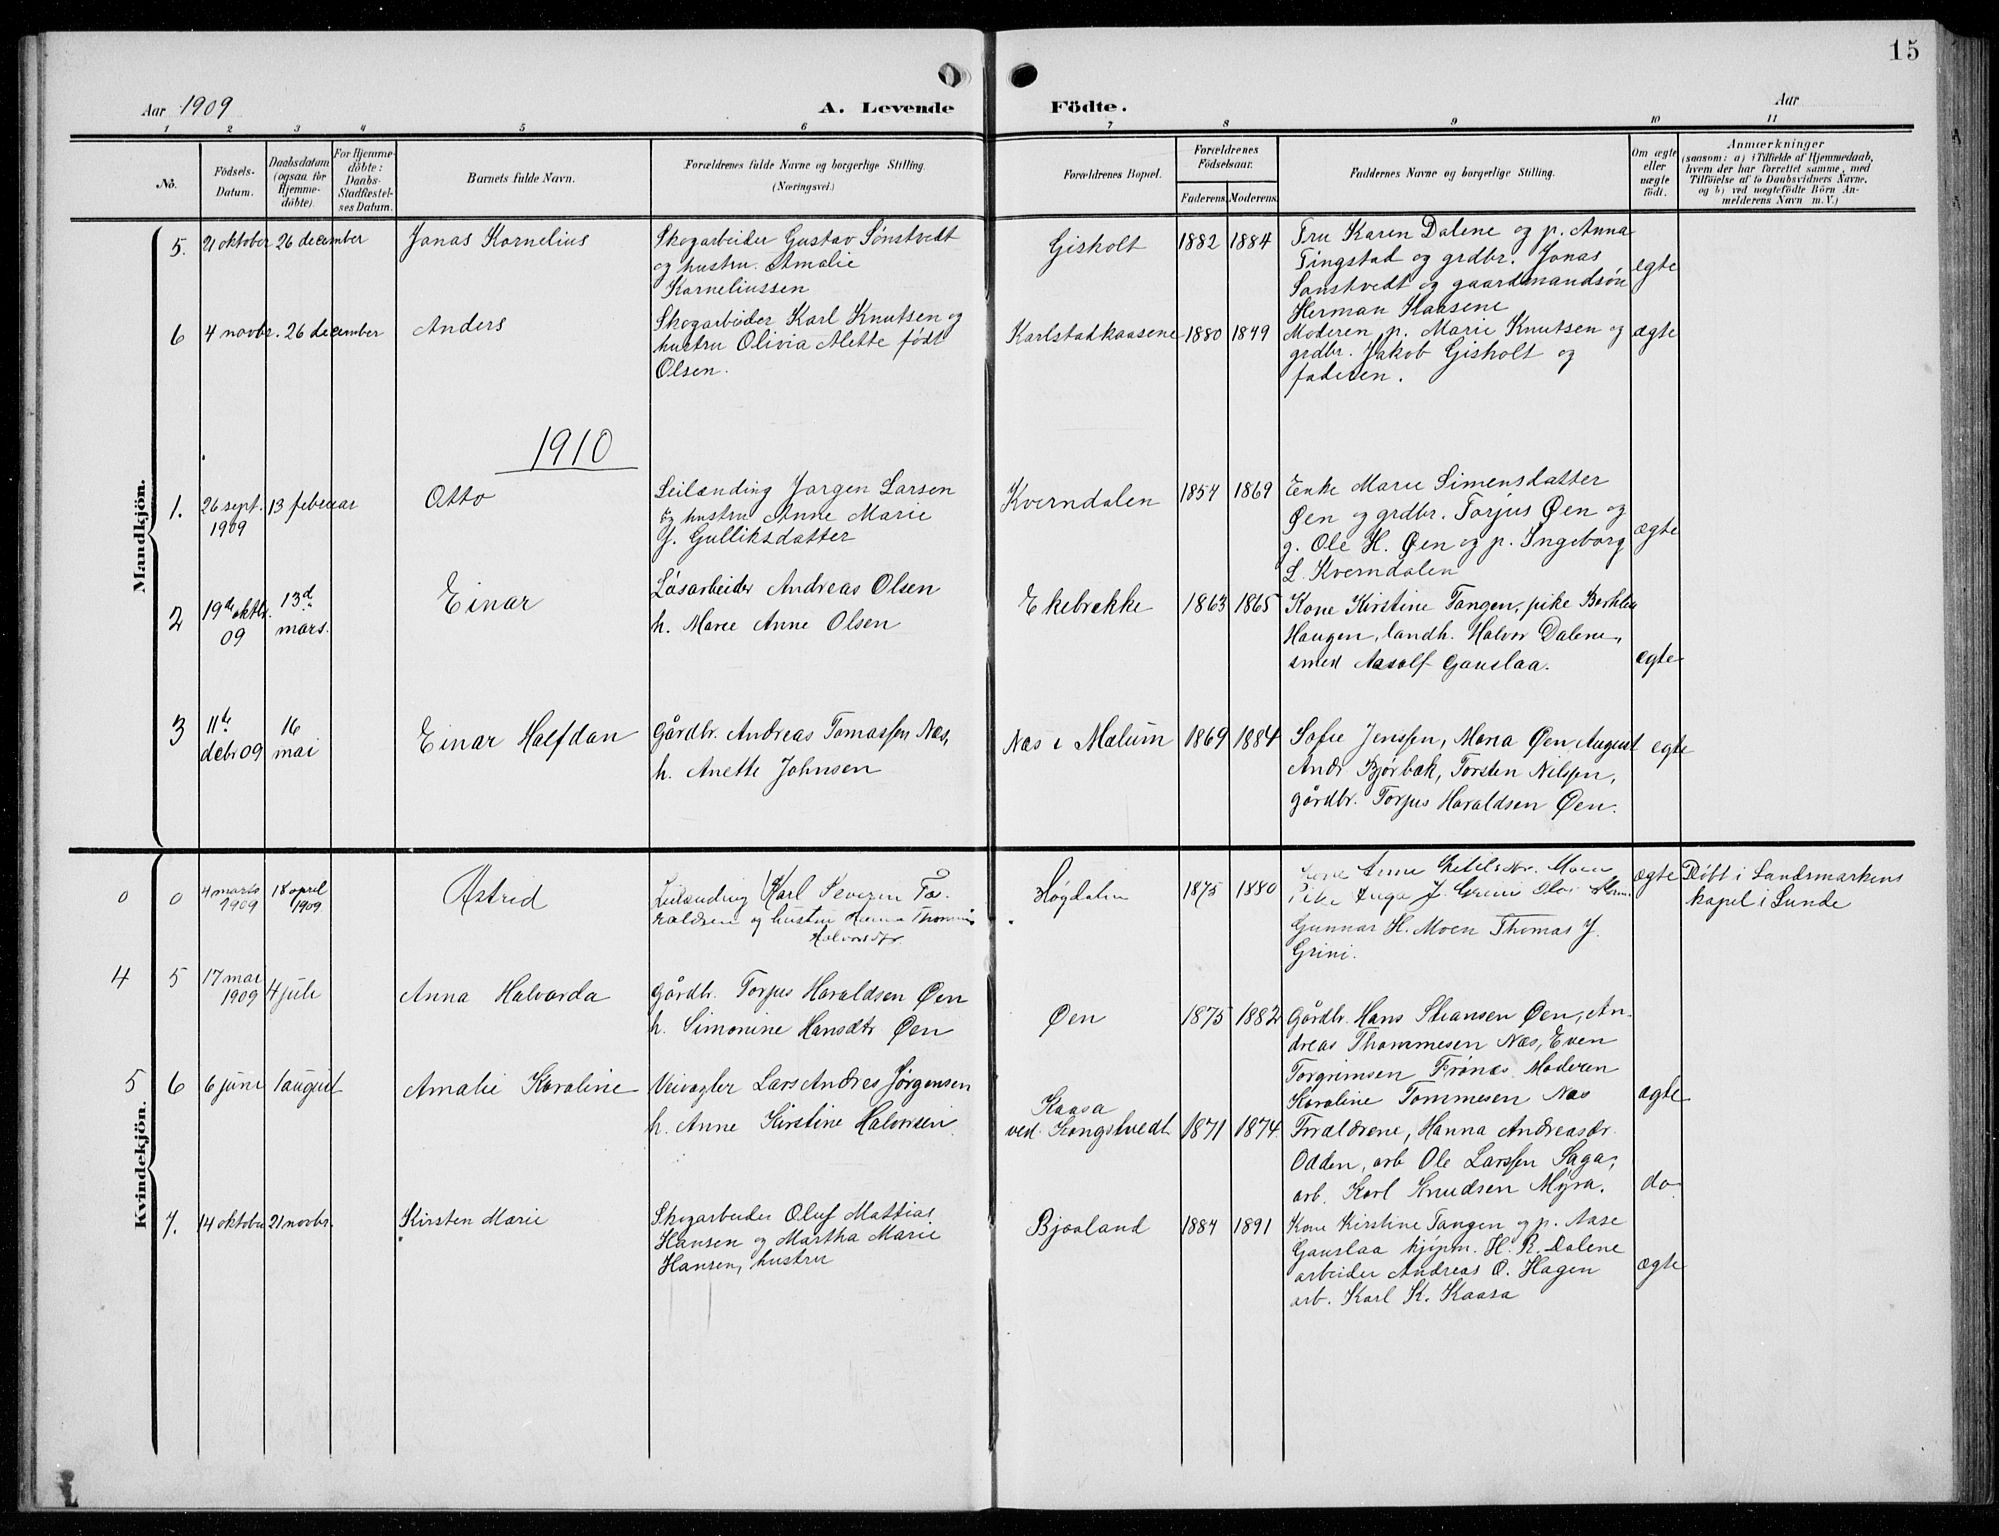 15
Aar 1909
A. Levende Födte.
Aar
1 2 3 4 5 6 7 8 9 10 11
No.
Födsels-Datum.
Daabsdatum (ogsaa for Hjemme-döbte).
For Hjemme-döbte: Daabs-Stadfæstel-ses Datum.
Barnets fulde Navn.
Forældrenes fulde Navne og borgerlige Stilling.
(Næringsvei.)
Forældrenes Bopæl.
Forældrenes Födselsaar.
Faderens. Moderens.
Faddernes Navne og borgerlige Stilling.
Om ægte eller uægte födt.
Anmærkninger
(saasom: a) i Tilfælde af Hjemmedaab,
hvem der har forrettet samme, med
Tilföielse af to Daabsvidners Navne,
og b) ved uegtefödte Börn An-
melderens Navn m. V.)
Mandkjön.
5. 21 oktober 26 december Jonas Kornelius Skogarbeider Gustav Sønstvedt Gisholt 1882 1884 Fru Karen Dalene og p. Anna
og hustru. Amalie Tingstad og grdbr. Jonas egte
Korneliussen Sønstvedt og gaardmandsøn
Herman Kaasene
6 4 novbr. 26 december Anders Skogarbeider Karl Knutsen og Karlstadkaasene 1880 1849 Moderen p. Marie Knutsen og ægte
hustru Olivia Alette født grdbr. Jakob Gisholt og
Olsen. faderen.
1910
1. 26 sept. 13 februar Otto Leilænding Jørgen Larsen Kverndalen 1854 1869 Enke Marie Simensdatter
1909 og hustru Anne Marie Øen og grdbr. Torjus Øen og
f. Gulliksdatter g. Ole H. Øen og p. Ingeborg ægte
L. Kverndalen
2 19de oktbr. 13d Einar Løsarbeider Andreas Olsen Ekebrække 1863 1865 Kone Kirstine Tangen, pike Berthea
09 mars. h. Marie Anne Olsen Haugen, landh. Halvor Dalene,
smed Aasolf Gauslaa. egte
3 11te 16 Einar Halfdan Gårdbr. Andreas Tomassen Næs, Næs i Melum 1869 1884 Sofie Jenssen, Maria Øen, August egte
debr 09 mai h. Anette Johnsen Andr. Bjørbæk, Torsten Nilsen,
gårdbr. Torjus Haraldsen Øen.
Kvindekjön.
0 0 4 marts 18 april Astrid Leilænding Karl Severin To- Høgdalen 1875 1880 Kone Anne Ketilsdtr. Moen ægte Døbt i Landsmarkens
1909 1909 raldsen og hustru Pike Inga J. Grini kapel i Lunde
Halvorsdtr. Gunnar H. Moen Thomas J.
Grini.
4 5 17 mai 4 juli Anna Halvarda Gårdbr. Torjus Haraldsen Øen Øen 1875 1882 Gårdbr. Hans Øen, An-
1909 h. Simonine Hansdtr Øen dreas Thommesen Næs, Even
Torgrimsen Frönæs Moderen
Karoline Tommesen Næs ægte
5 6 6 juni 1 august Amalie Karoline Veivogter Lars Andreas Jørgensen Kaasa
h. Anne Kirstine Halvorsen ved. Kongstvedt 1871 1874 Forældrene, Hanna Andreasdr.
Odden, arb Ole Larssen Saga,
arb. Karl Knudsen Myra. do
7. 14 oktober 21 novbr. Kirsten Marie Skogarbeider Oluf Mattias Bjaaland 1884 1891 Kone Kirstine Tangen og p. Aase
Hansen og Martha Marie Gauslaa kjøpm. H. R. Dalene
Hansen, hustru arbeider Andreas O. Hagen ægte
arb. Karl K. Kaasa